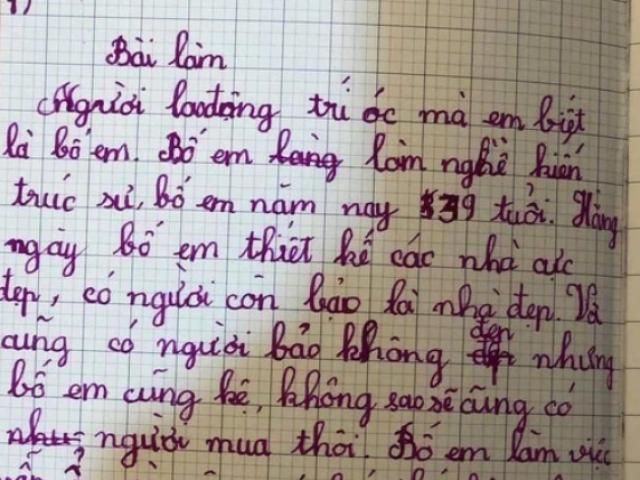 Bài làm
Người lao động trí óc mà em biết
là bố em. Bố em làng làm nghề kiến
trúc sư, bố em năm nay 39 tuổi. Hằng
ngày bố em thiết kế các nhà cực
đẹp, có người còn bảo là nhà đẹp. Và
cũng có người bảo không đẹp nhưng
bố em cũng kệ, không sao sẽ cũng có
như người mua thôi. Bố em làm việc